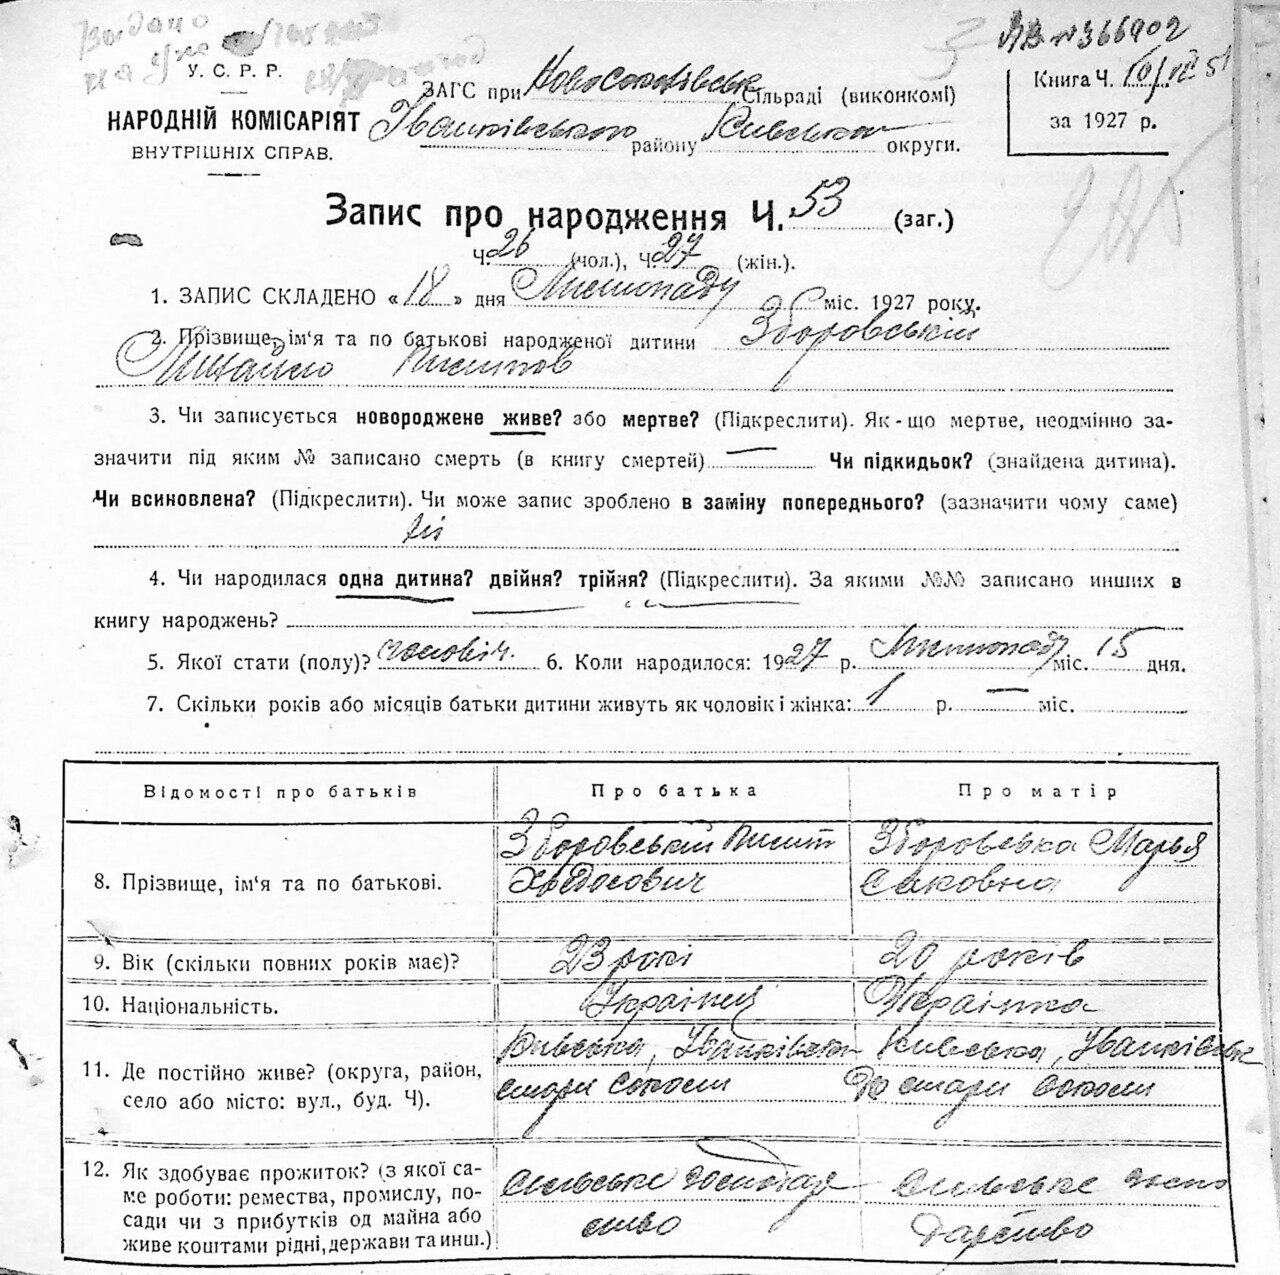 Видано
АВ №366902
У. С. Р. Р.
НАРОДНІЙ КОМІСАРІЯТ
ВНУТРІШНІХ СПРАВ.
ЗАГС при Новосоколівськ Сільраді (виконкомі)
Іванківського району Київська округи.
Книга Ч.
за 1927 р.
Запис про народження Ч. 53 (заг.)
Ч. 26 (чол.), Ч. 27 (жін.).
1. ЗАПИС СКЛАДЕНО « 18 » дня Листопаду міс. 1927 року.
2. Прізвище, ім'я та по батькові народженої дитини Зборовський
Михайло
3. Чи записується новороджене живе? або мертве? (Підкреслити). Як-що мертве, неодмінно за-
значити під яким № записано смерть (в книгу смертей) — Чи підкидьок? (знайдена дитина).
Чи всиновлена? (Підкреслити). Чи може запис зроблено в заміну попереднього? (зазначити чому саме)
Ні
4. Чи народилася одна дитина? двійня? трійня? (Підкреслити). За якими №№ записано инших в
книгу народжень?
5. Якої стати (полу)? чоловіч. 6. Коли народилося: 1927 р. Листопаду міс. 15 дня.
7. Скільки років або місяців батьки дитини живуть як чоловік і жінка: 1 р. — міс.
Відомості про батьків
Про батька
Про матір
8. Прізвище, ім'я та по батькові.
Зборовський
Ходосович
Зборовська Марья
Саковна
9. Вік (скільки повних років має)?
23 рокі
20 років
10. Національність.
Українец
Українка
11. Де постійно живе? (округа, район,
село або місто: вул., буд. Ч).
Київська, Іванківськ
стари Соколи
Київська, Іванківськ
стари Соколи
12. Як здобуває прожиток? (з якої са-
ме роботи: ремества, промислу, по-
сади чи з прибутків од майна або
живе коштами рідні, держави та инш.)
сільське господар
ство
сільське госпо
дарство